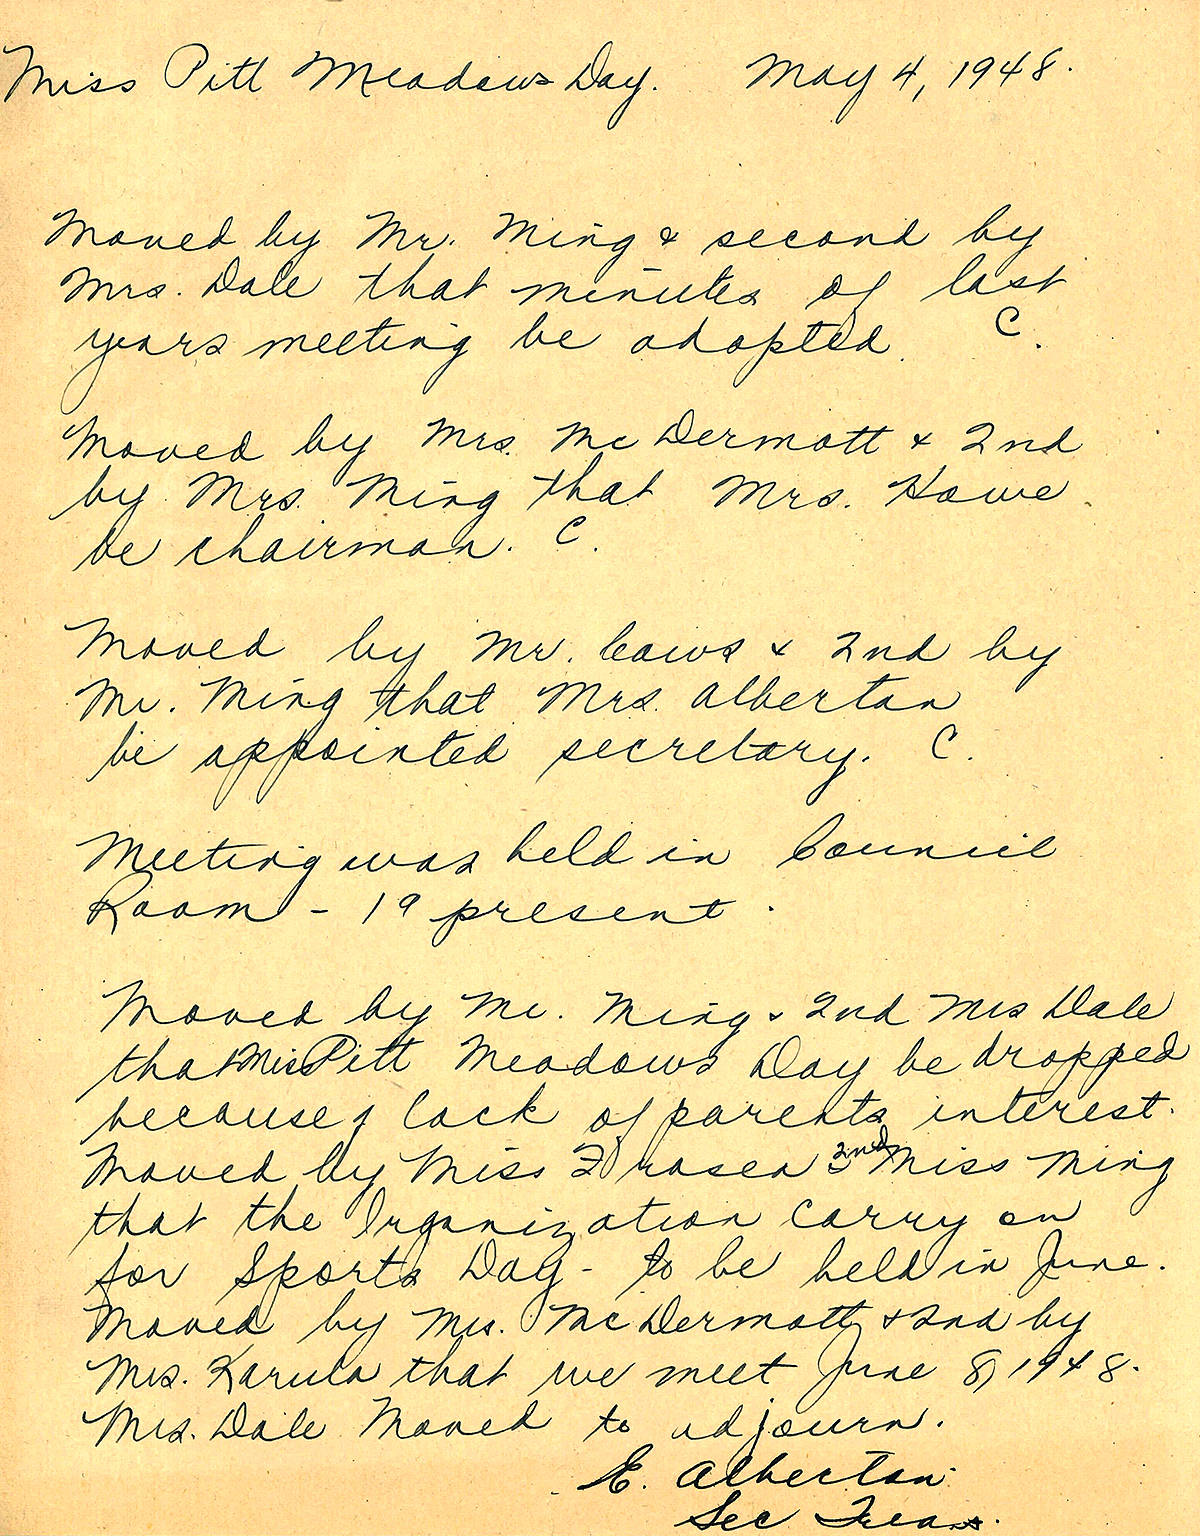 Miss Pitt Meadows Day. May 4, 1948.
Moved by Mr. Ming & second by
Mrs. Dale that minutes of last
years meeting be adopted. C.
Moved by Mrs. McDermott & 2nd
by Mrs. Ming that Mrs. Howe
be chairman. C.
Moved by Mr. Caws & 2nd by
Mr. Ming that Mrs. Alberton
be appointed secretary. C.
Meeting was held in Council
Room - 19 present.
Moved by Mr. Ming & 2nd Mrs Dale
that Miss Pitt Meadows Day be dropped
because of lack of parents interest.
Moved by Miss 2nd Miss Ming
that the Organization carry on
for Sports Day - to be held in June.
Moved by Mrs. McDermott & 2nd by
Mrs. that we meet June 8, 1948.
Mrs. Dale Moved to adjourn.
E. Alberton
Sec Treas.